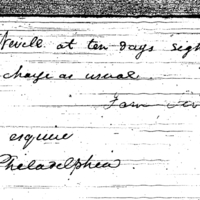 Nevill. at ten days sigh
charge as usual.
I am
esquire
Philadelphia